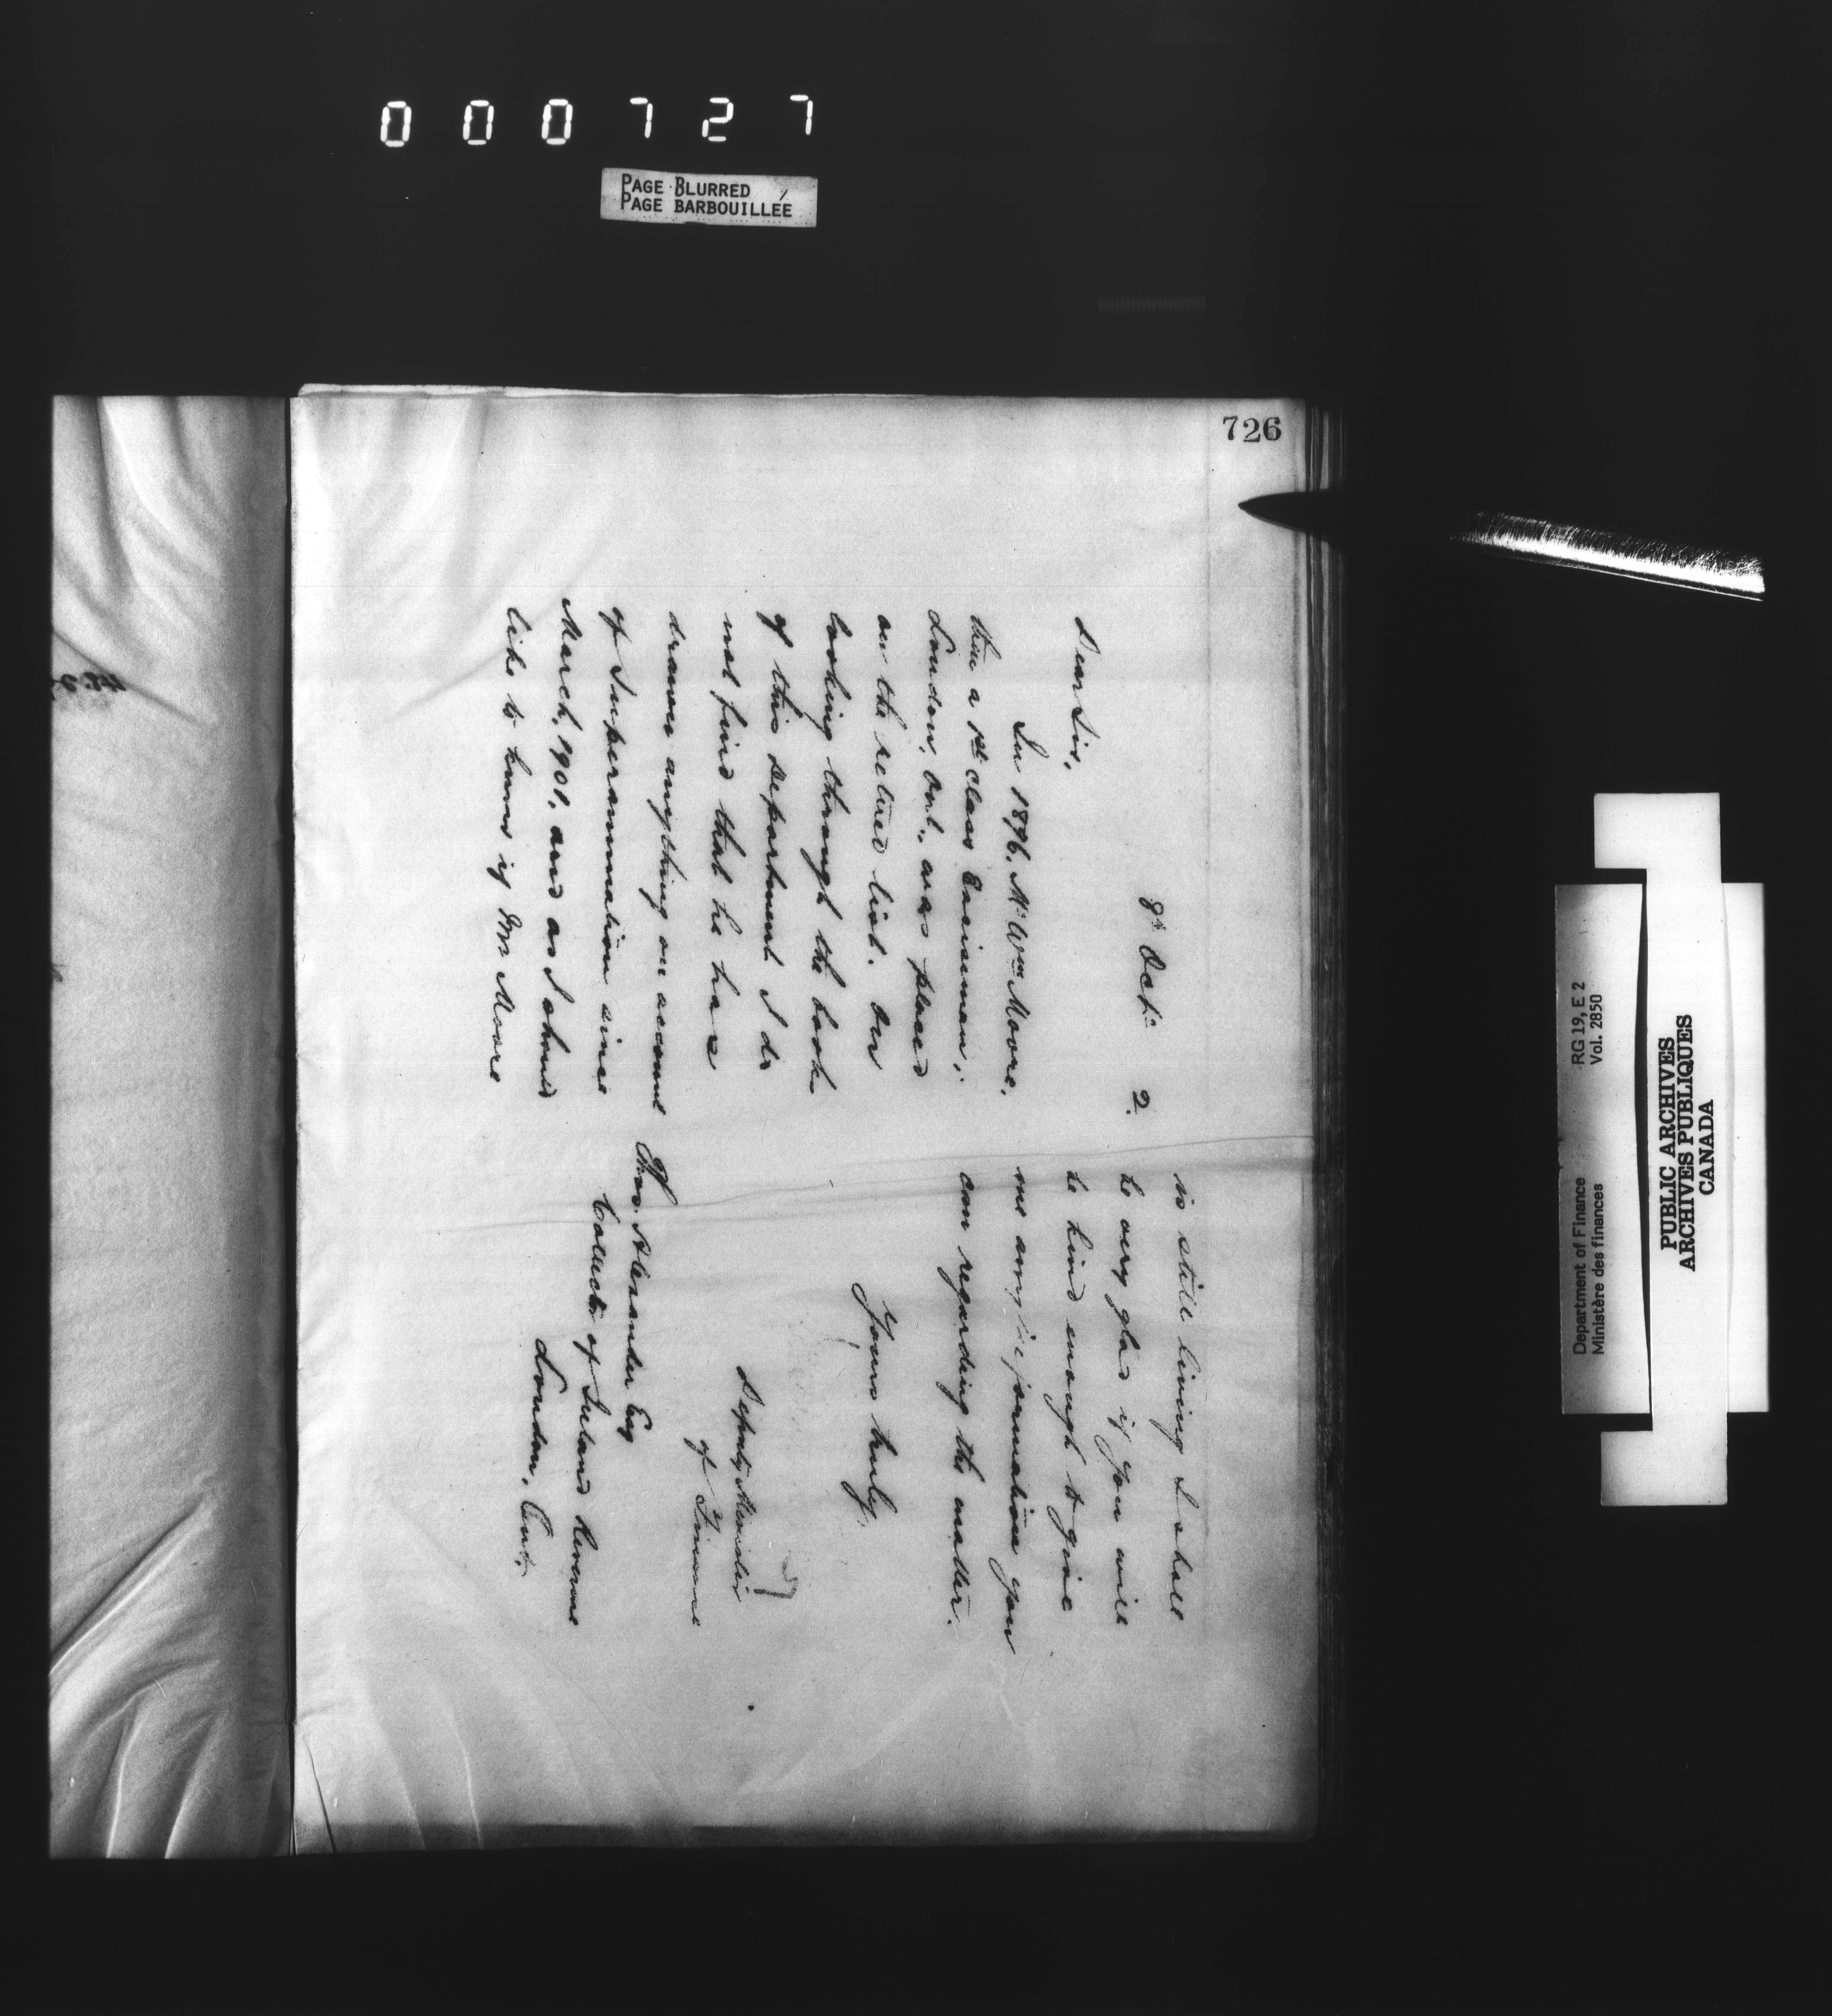 000727
PAGE BLURRED
PAGE BARBOUILLÉE
726
8th Octr 2.
Dear Sir,
In 1896, Mr Wm Moore,
then a 1st class Exciseman,
London, Ont., was placed
on the retired list. On
looking through the books
of this department I do
not find that he has
drawn anything on account
of Superannuation since
March, 1901, and as I should
like to know if Mr Moore
is still living I shall
be very glad if you will
be kind enough to give
me any information you
can regarding the matter.
Yours truly,
Deputy Minister
of Finance
Thos. Alexander Esq
Collector of Inland Revenue
London, Ont.
Department of Finance RG 19, E 2
Ministère des finances Vol. 2850
PUBLIC ARCHIVES
ARCHIVES PUBLIQUES
CANADA